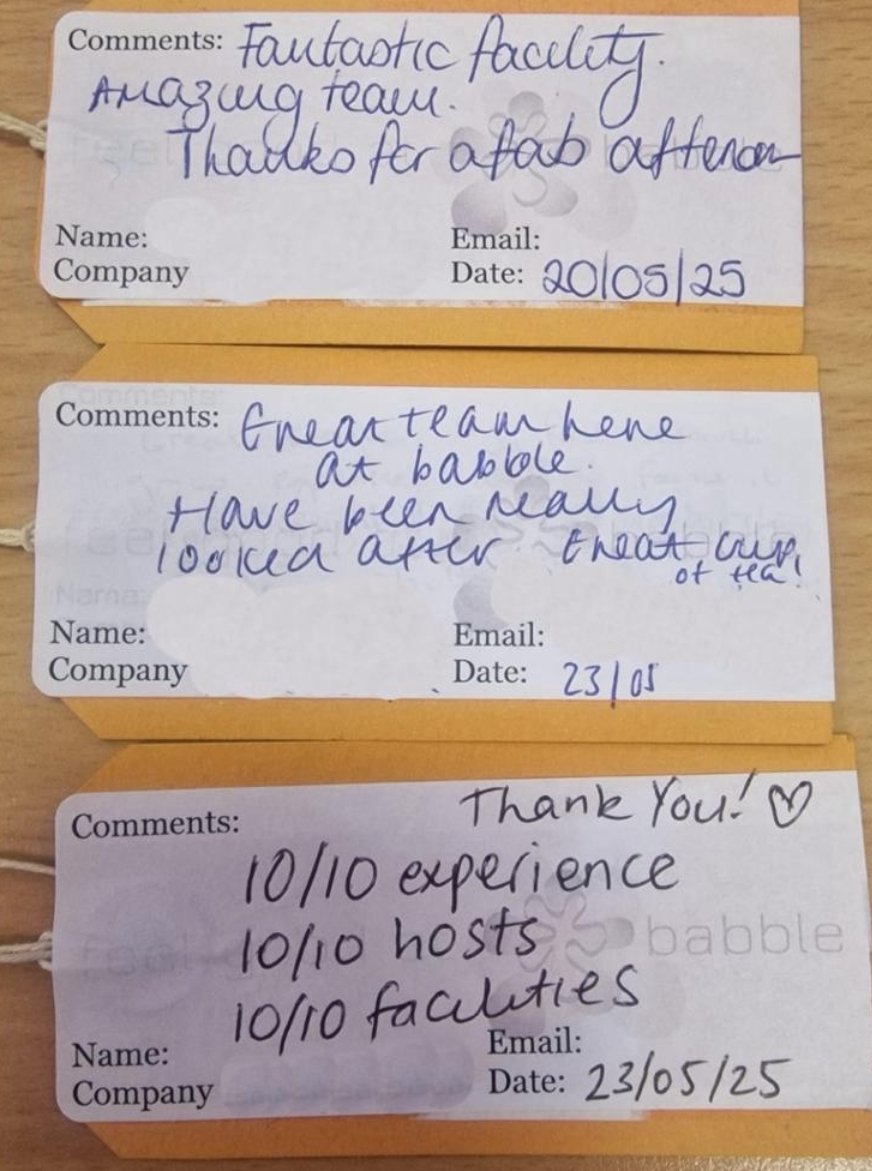 Comments: Fantastic facility.
Amazing team.
Thanks for a fab afternoon
Name:
Email:
Company
Date: 20/05/25
Comments: Great team here
at babble.
Have been really
looked after. Great cup
of tea!
Name:
Email:
Company
Date: 23/05
Comments:
Thank You! ♡
10/10 experience
10/10 hosts
babble
10/10 facilities
Name:
Email:
Company
Date: 23/05/25